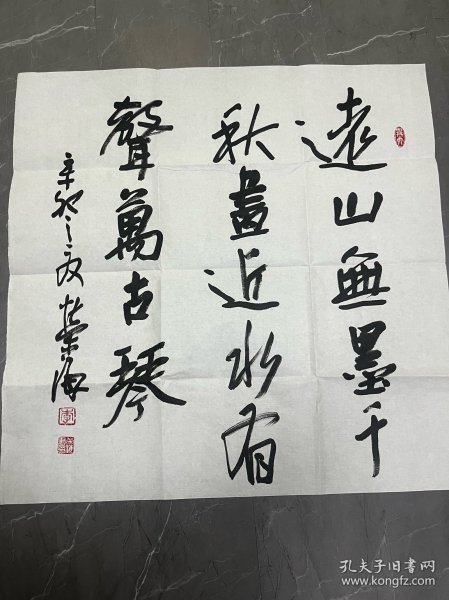 遠山無墨千
秋畫近水有
聲萬古琴
辛卯之
榮海
孔夫子旧书网
www.kongfz.com